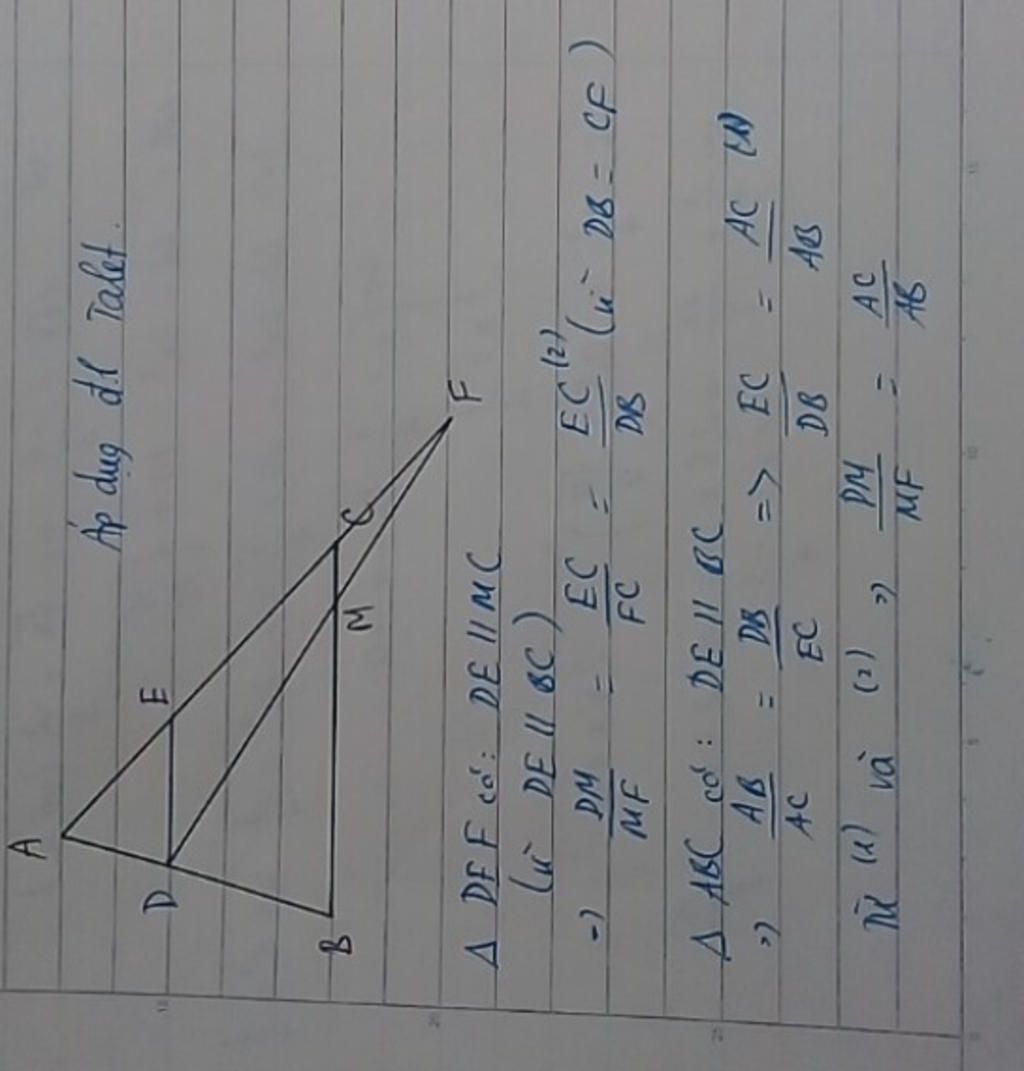 Áp dụng đ.l Talet.
A
D
E
B
M
C
F
Δ DEF có: DE // MC
(vì DE // BC)
=> DM/MF = EC/FC = EC/DB (2) (vì DB = CF)
Δ ABC có: DE // BC
=> AB/AC = DB/EC => EC/DB = AC/AB (1)
Từ (1) và (2) => DM/MF = AC/AB